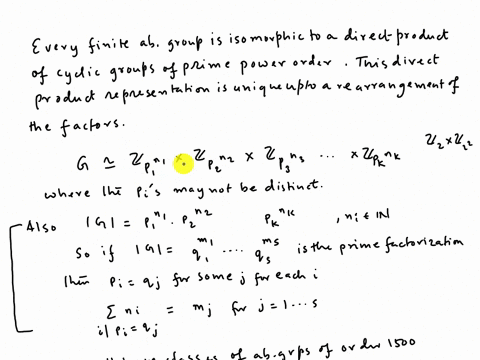 Every finite ab. group is isomorphic to a direct product
of cyclic groups of prime power order. This direct
product representation is unique upto a rearrangement of
the factors.
G ≃ ℤ_{p_1^{n_1}} × ℤ_{p_2^{n_2}} × ℤ_{p_3^{n_3}} ... × ℤ_{p_k^{n_k}} ℤ_2 × ℤ_{2^2}
where the p_i's may not be distinct.
Also |G| = p_1^{n_1} . p_2^{n_2} p_k^{n_k} , n_i ∈ ℕ
So if |G| = q_1^{m_1} .... q_s^{m_s} is the prime factorization
then p_i = q_j for some j for each i
∑ n_i = m_j for j = 1 ... s
i | p_i = q_j
classes of ab. grps of order 1500